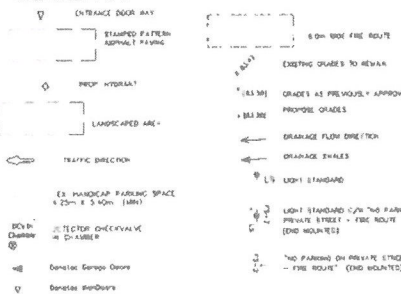 ENTRANCE DOOR WAY
STAMPED PATTERN
ASPHALT PAVING
PROP HYDRANT
LANDSCAPED AREA
TRAFFIC DIRECTION
EX. HANDICAP PARKING SPACE
(MIN)
DCV In
Chamber
DETECTOR CHECKVALVE
CHAMBER
Denotes Garage Doors
Denotes ManDoors
6.0m WIDE FIRE ROUTE
EXISTING GRADES TO REMAIN
GRADES AS PREVIOUSLY APPROV
PROPOSE GRADES
DRAINAGE FLOW DIRECTION
DRAINAGE SWALES
LS LIGHT STANDARD
LIGHT STANDARD C/W "NO PARKI
PRIVATE STREET - FIRE ROUTE
(END MOUNTED)
"NO PARKING ON PRIVATE STREE
- FIRE ROUTE" (END MOUNTED)